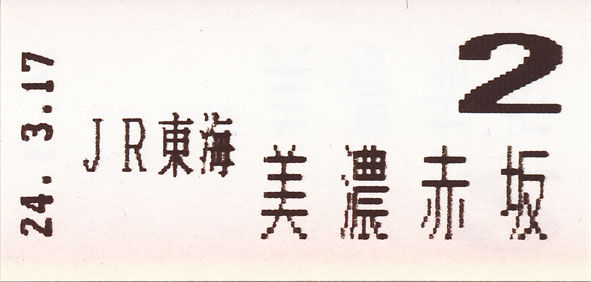 24. 3.17
2
JR東海
美濃赤坂